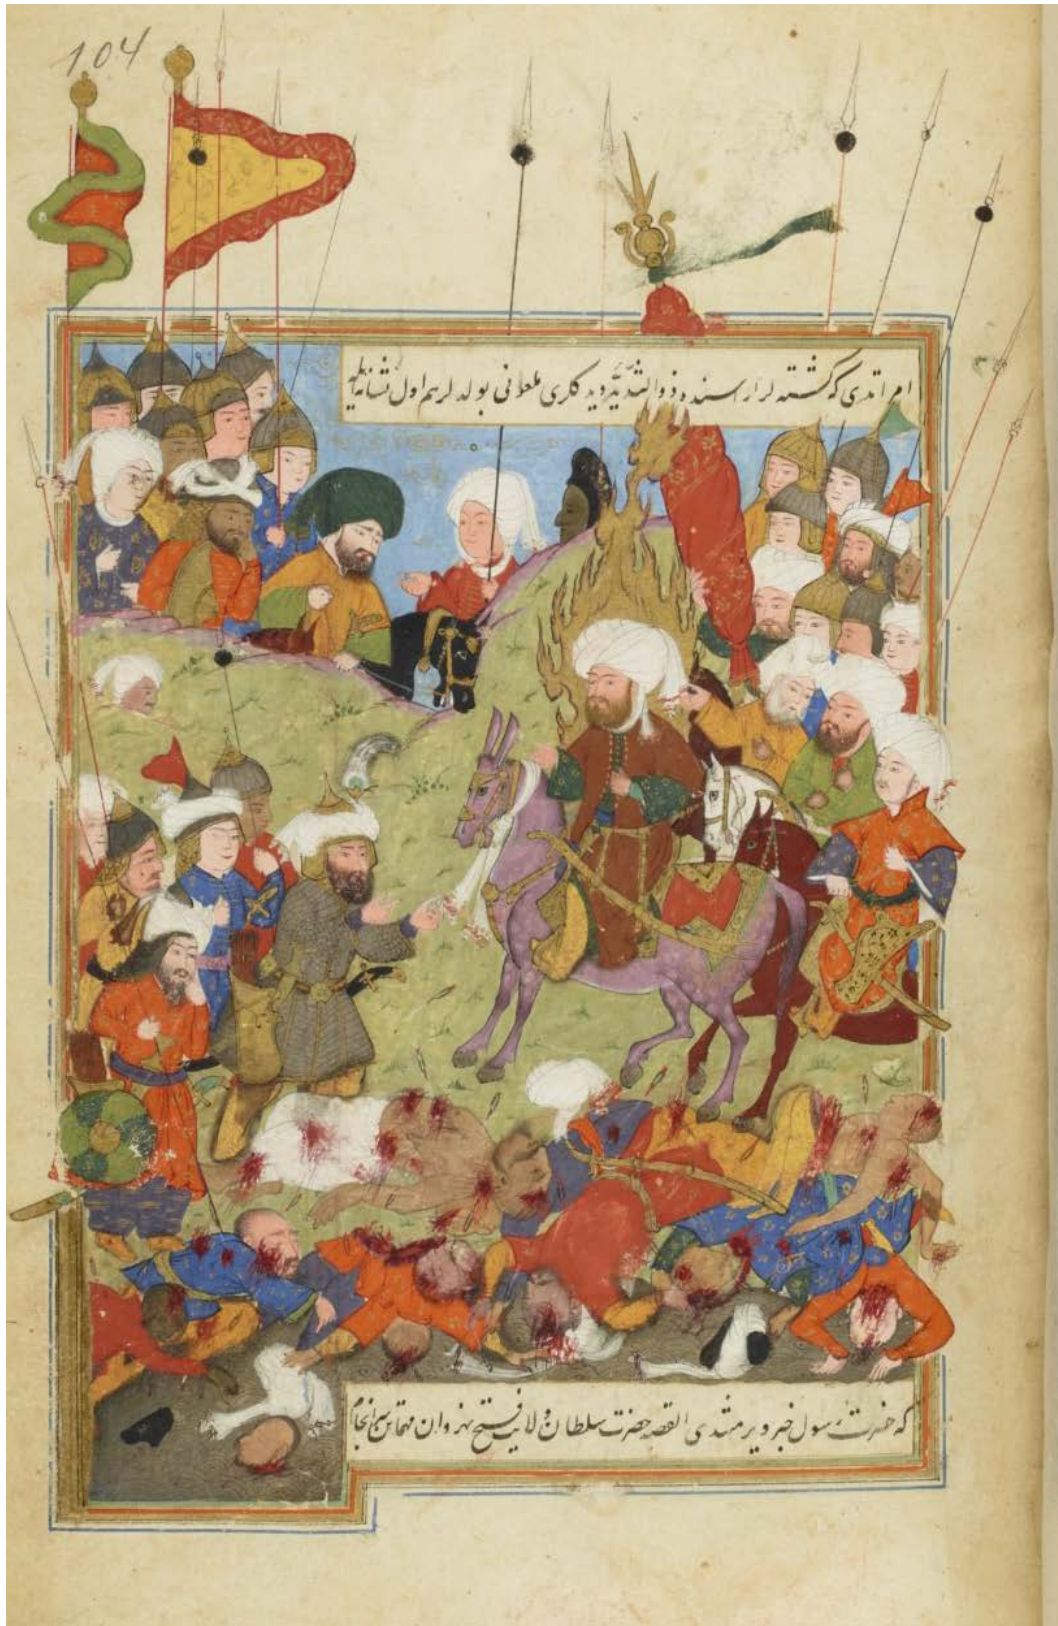 104
امر اتدی که کشته لر اراسنده ذو الثدیه دیدکلری ملعونی بولدلر هم اول نشانیله
که حضرت رسول خبر ویرمشدی القصه حضرت سلطان ولایت فتح نهروان مهماتن سرانجام